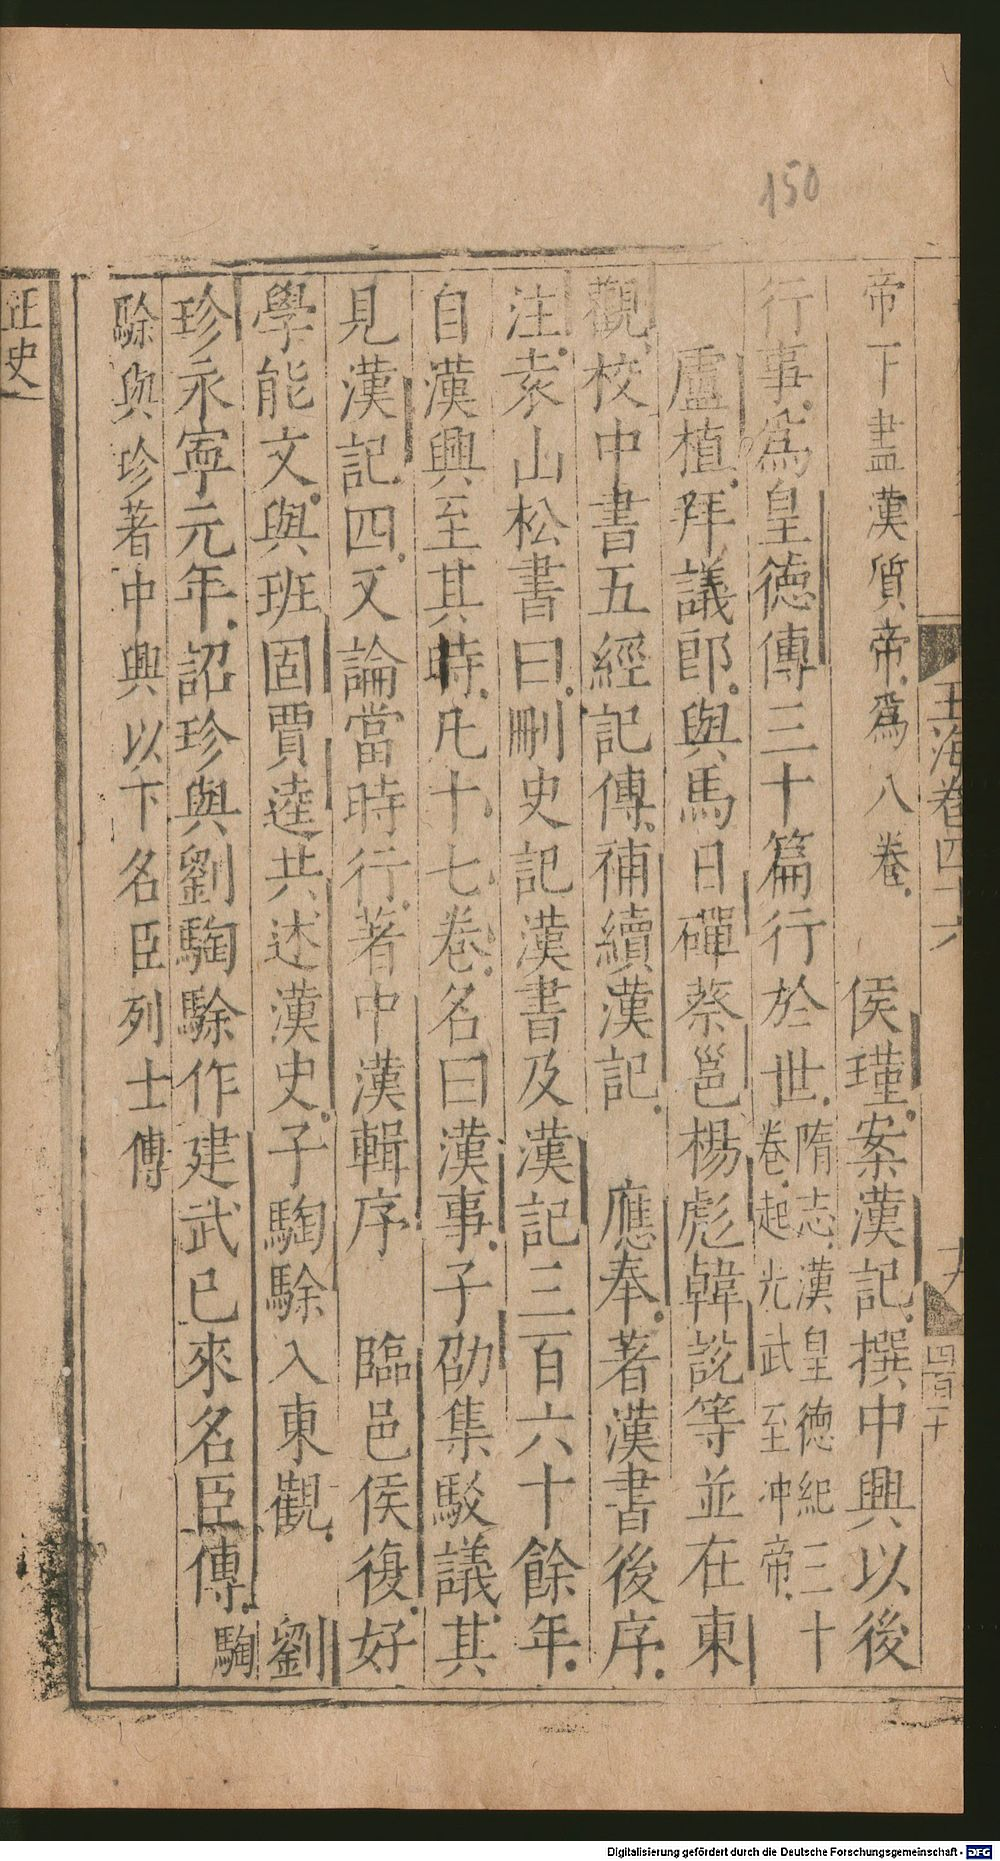 150
玉海卷四十六
四百二十
帝下盡漢質帝爲八卷 侯瑾案漢記撰中興以後
行事爲皇德傳三十篇行於世隋志漢皇德紀三十卷起光武至冲帝
盧植拜議郎與馬日磾蔡邕楊彪韓說等並在東
觀校中書五經記傳補續漢記 應奉著漢書後序
注袁山松書曰刪史記漢書及漢記三百六十餘年
自漢興至其時凡十七卷名曰漢事子劭集駁議其
見漢記四又論當時行著中漢輯序 臨邑侯復好
學能文與班固賈逵共述漢史子騊駼入東觀 劉
珍永寧元年詔珍與劉騊駼作建武已來名臣傳騊
駼與珍著中興以下名臣列士傳
正史
Digitalisierung gefördert durch die Deutsche Forschungsgemeinschaft - DFG